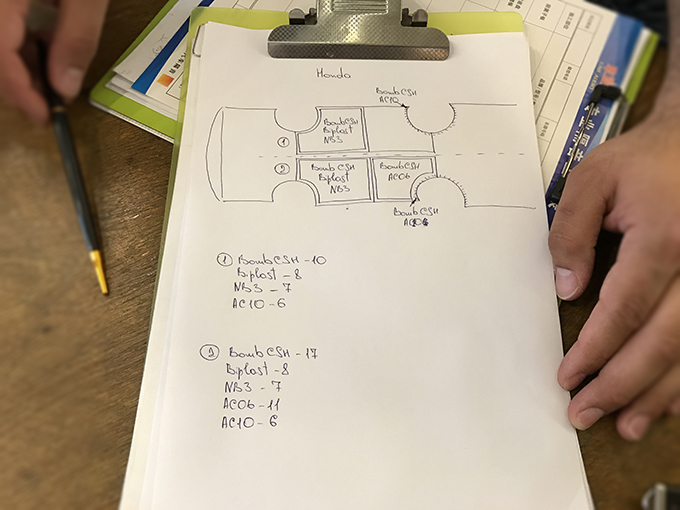 Honda
BombCSH
AC10
①
BombCSH
Bplast
NB3
②
BombCSH
Bplast
NB3
BombCSH
AC06
BombCSH
① BombCSH - 10
Bplast - 8
NB3 - 7
AC10 - 6
② BombCSH - 17
Bplast - 8
NB3 - 7
AC06 - 11
AC10 - 6